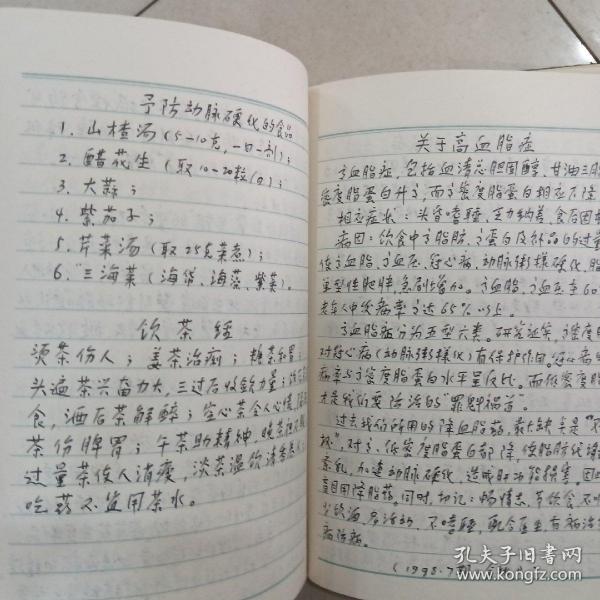 予防动脉硬化的食品
1. 山楂汤（5—10克，一日一剂）；
2. 醋花生（取10—20粒/日）；
3. 大蒜；
4. 紫茄子；
5. 芹菜汤（取25克菜煮）；
6. "三海菜（海带、海藻、紫菜）。
饮茶经
烫茶伤人；姜茶治痢；糖茶和胃；
头遍茶兴奋力大，三过后收敛力量；
食，酒后茶解醉；空心茶令人心慌，
茶伤脾胃；午茶助精神，晚茶
过量茶使人消瘦，淡茶温饮清香
吃药不宜用茶水。
关于高血脂症
高血脂症，包括血清总胆固醇，甘油三
密度脂蛋白升高，而高密度脂蛋白相应下降
相应症状：头昏嗜睡，乏力纳差，食后困
病因：饮食中高脂肪、高蛋白及
使高血脂、高血压、冠心病、动脉粥样硬化、脂
单型性肥胖，急剧增加。高血脂、高血压
老年人中发病率高达65%以上。
高血脂症分为五型六类。研究证实，高密度
对冠心病（动脉粥样硬化）有保护作用。
病率与高密度脂蛋白水平呈反比。而低密度脂
才是我们要防治的"罪魁祸首"。
过去我们所用的降血脂药，最大缺点是"不
"，对高、低密度脂蛋白都降，使脂肪代谢
紊乱，加速动脉硬化，造成肝功能损害，因
盲目用降脂药。同时，切记：畅情志，节饮食
少饮酒，多活动，不嗜睡，配合医生，有病治
病防病。
（1998.7
孔夫子旧书网
kongfz.com